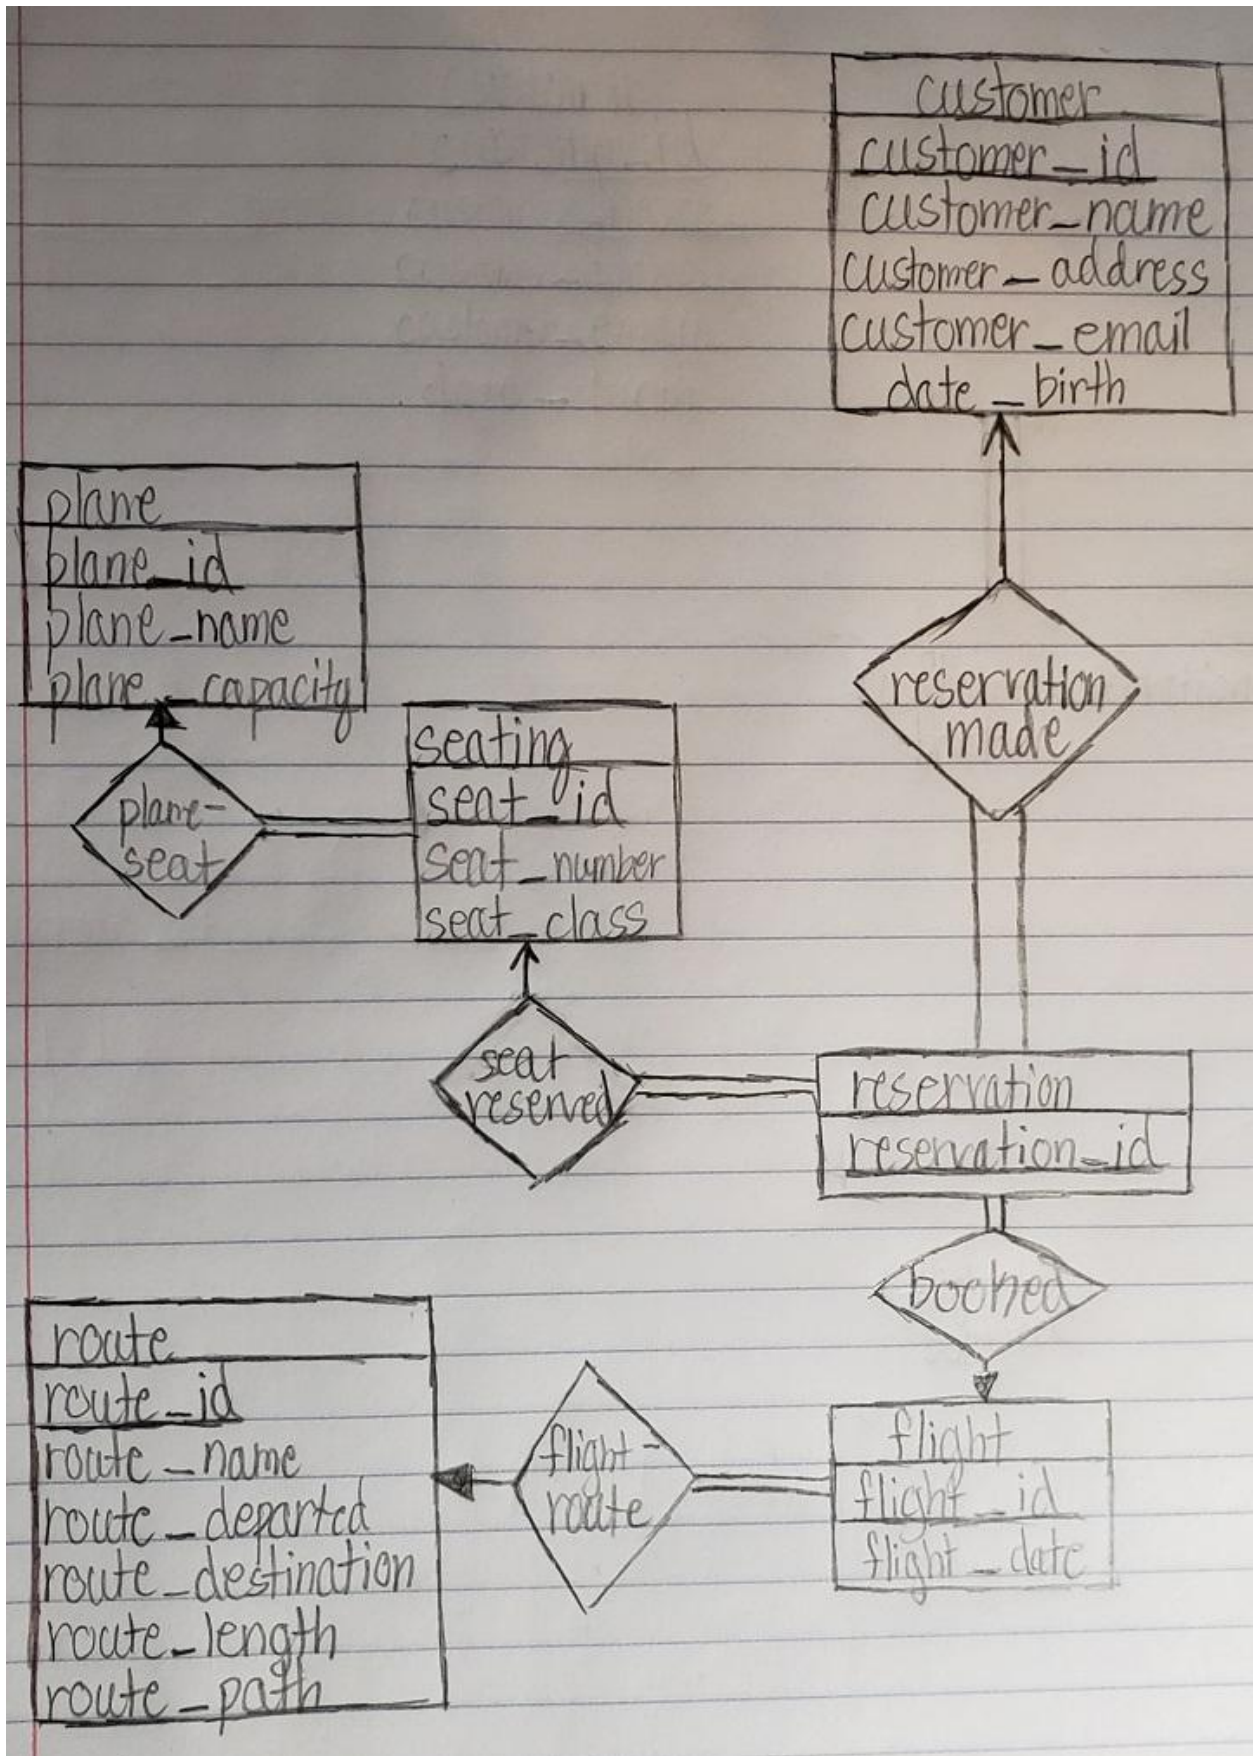 customer
customer_id
customer_name
customer_address
customer_email
date_birth
plane
plane_id
plane_name
plane_capacity
reservation
made
seating
seat_id
seat_number
seat_class
plane-
seat
seat
reserved
reservation
reservation_id
booked
route
route_id
route_name
route_departed
route_destination
route_length
route_path
flight-
route
flight
flight_id
flight_date